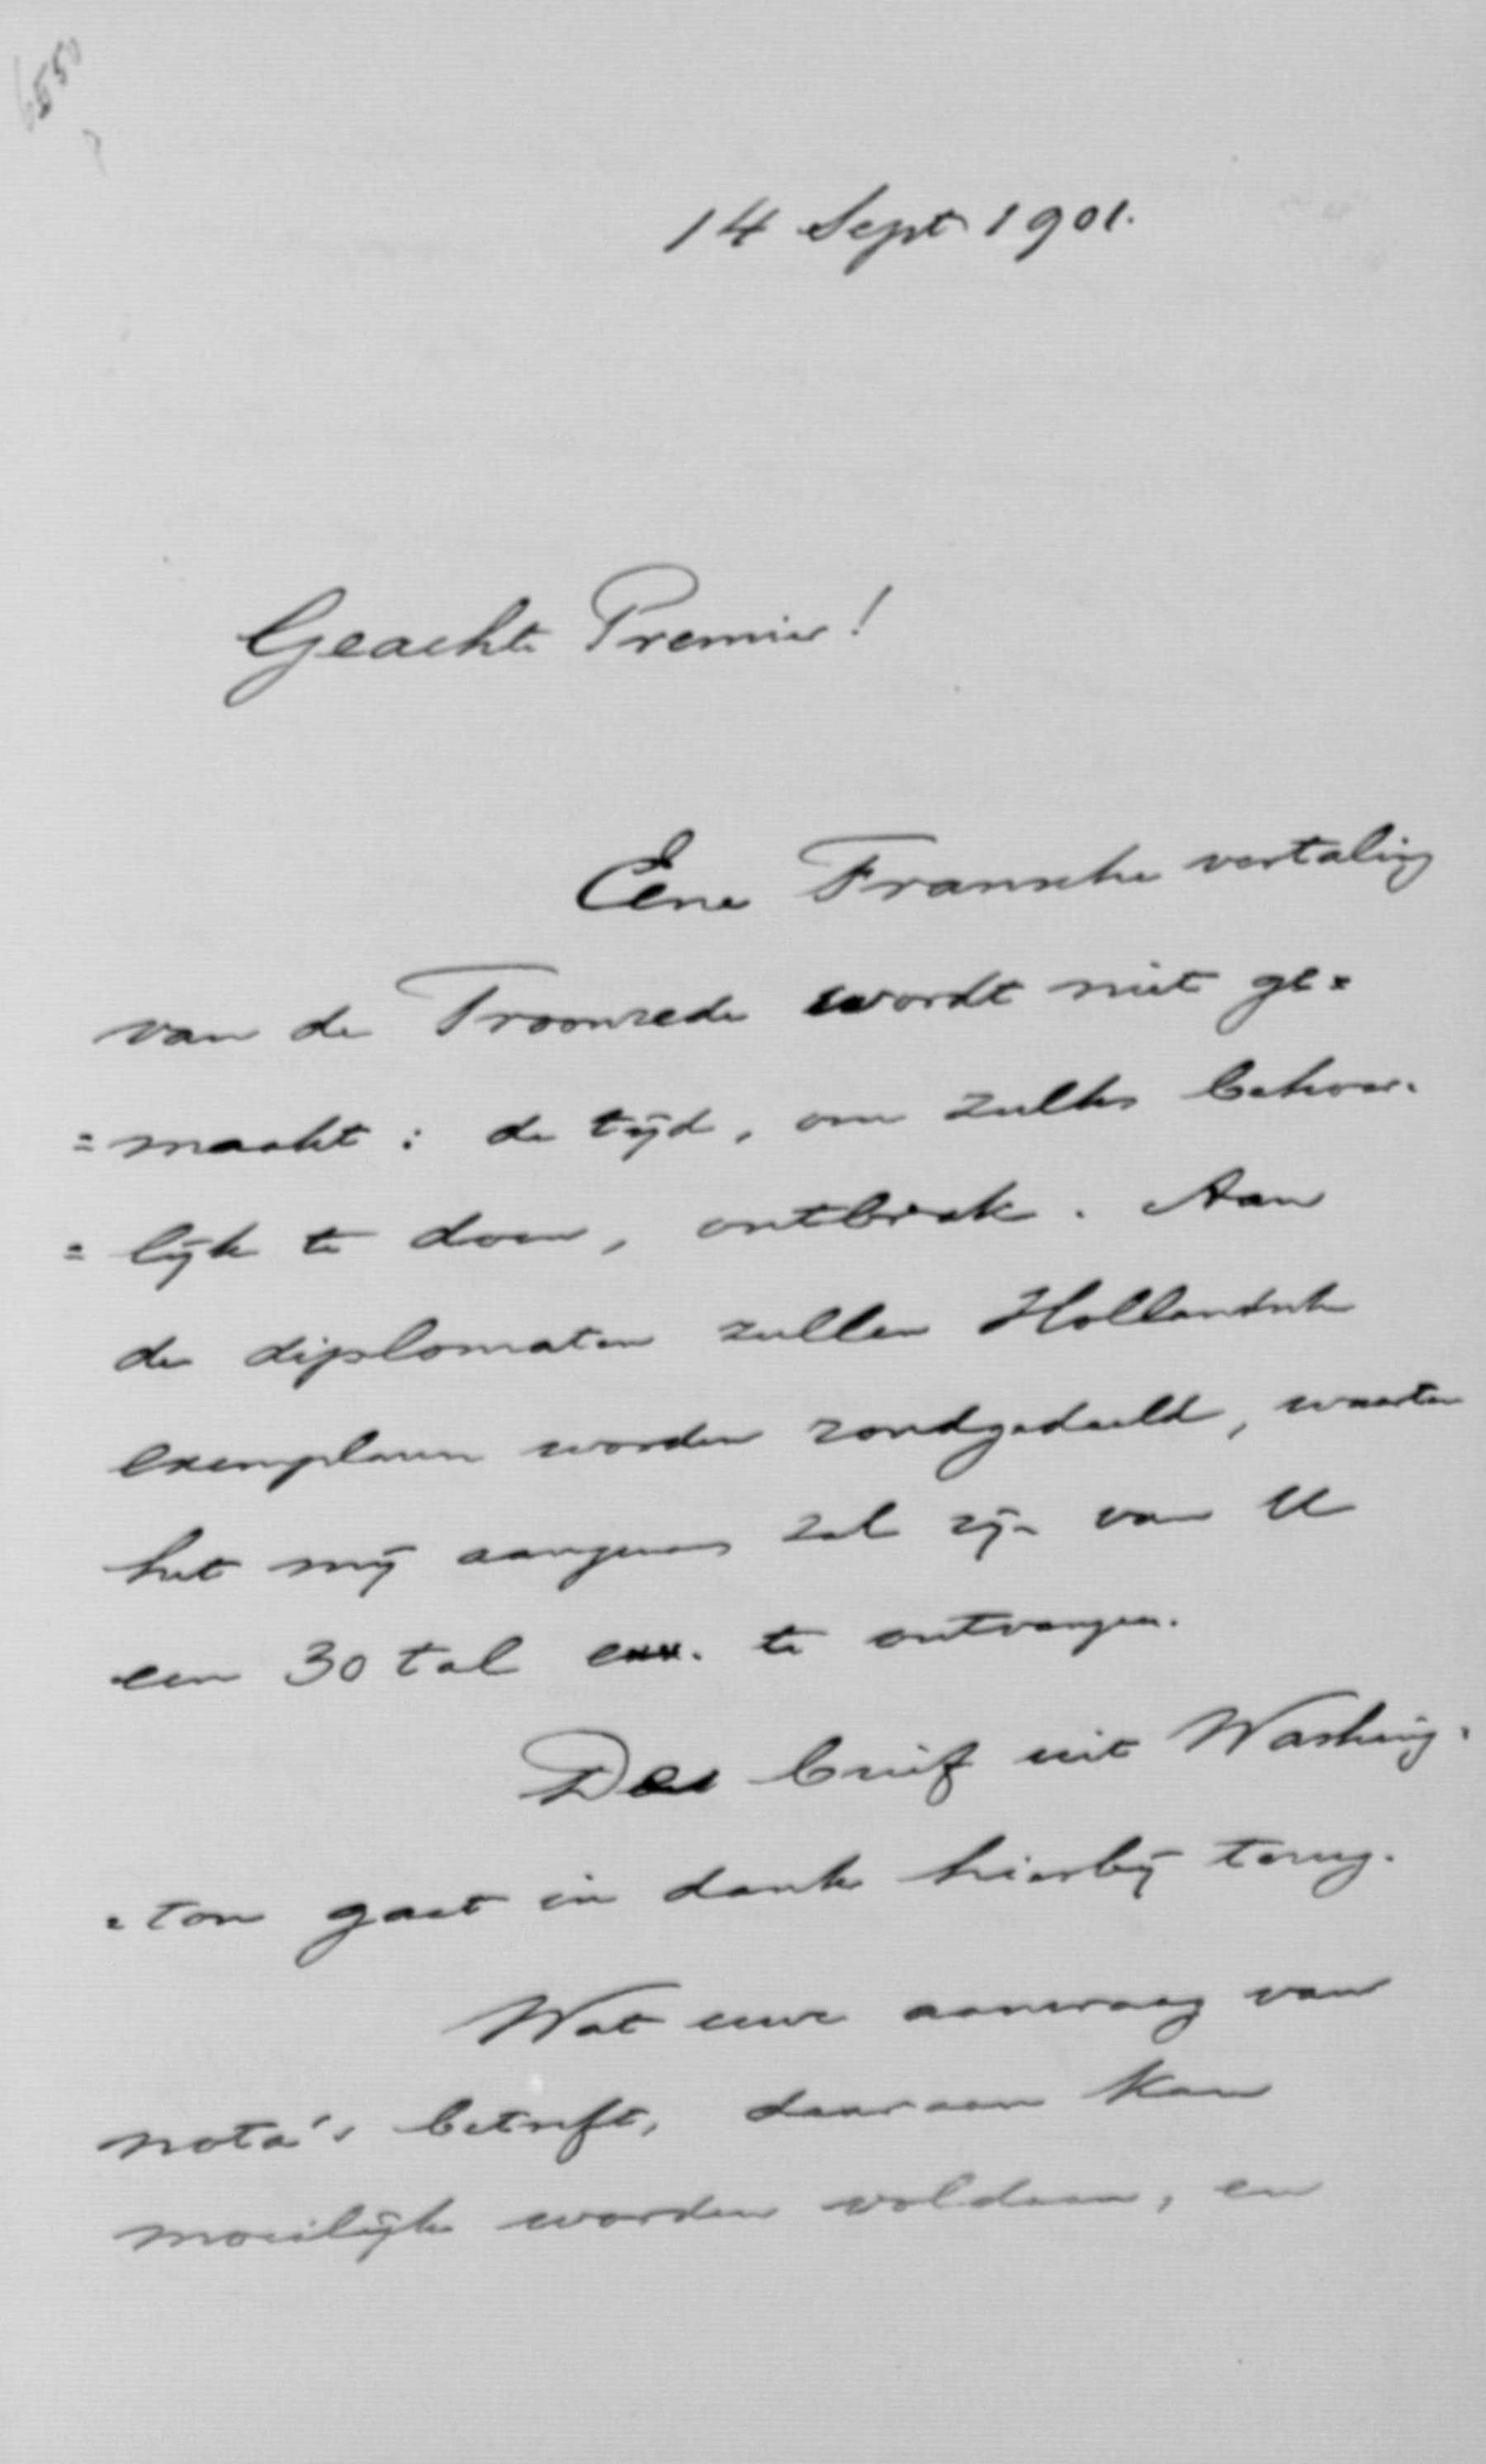 6550
14 Sept 1901.
Geachte Premier!
Eene Fransche vertaling
van de Troonrede wordt niet ge=
=maakt: de tijd, om zulks behoor=
=lijk te doen, ontbrak. Aan
de diplomaten zullen Hollandsche
exemplaren worden rondgedeeld, waartoe
het mij aangenaam zal zijn van U
een 30 tal exx. te ontvangen.
De brief uit Washing=
=ton gaat in dank hierbij terug.
Wat uwe aanvraag van
nota's betreft, daaraan kan
moeilijk worden voldaan, en